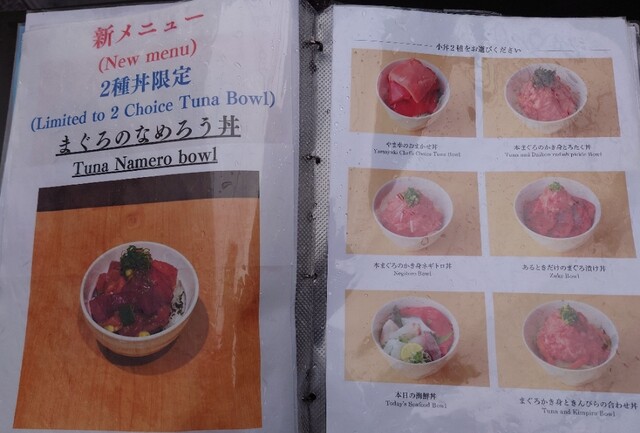 新メニュー
(New menu)
2種丼限定
(Limited to 2 Choice Tuna Bowl)
まぐろのなめろう丼
Tuna Namero bowl
小丼2種をお選びください
やま幸のおまかせ丼
Yamayuki Chef's Choice Tuna Bowl
本まぐろのかき身とろたく丼
Tuna and Daikon radish pickle Bowl
本まぐろのかき身ネギトロ丼
Negitoro Bowl
あるときだけのまぐろ漬け丼
Zuke Bowl
本日の海鮮丼
Today's Seafood Bowl
まぐろかき身ときんぴらの合わせ丼
Tuna and Kinpira Bowl